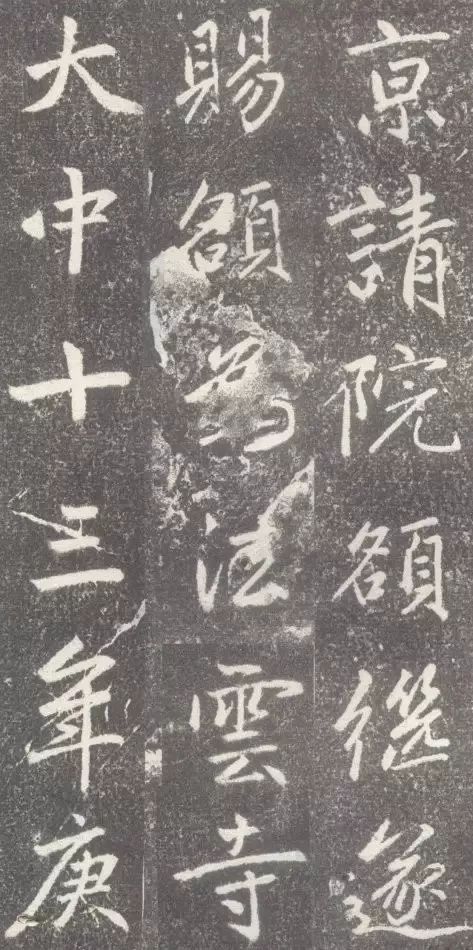 京請院額繼遂
賜額為法雲寺
大中十三年庚